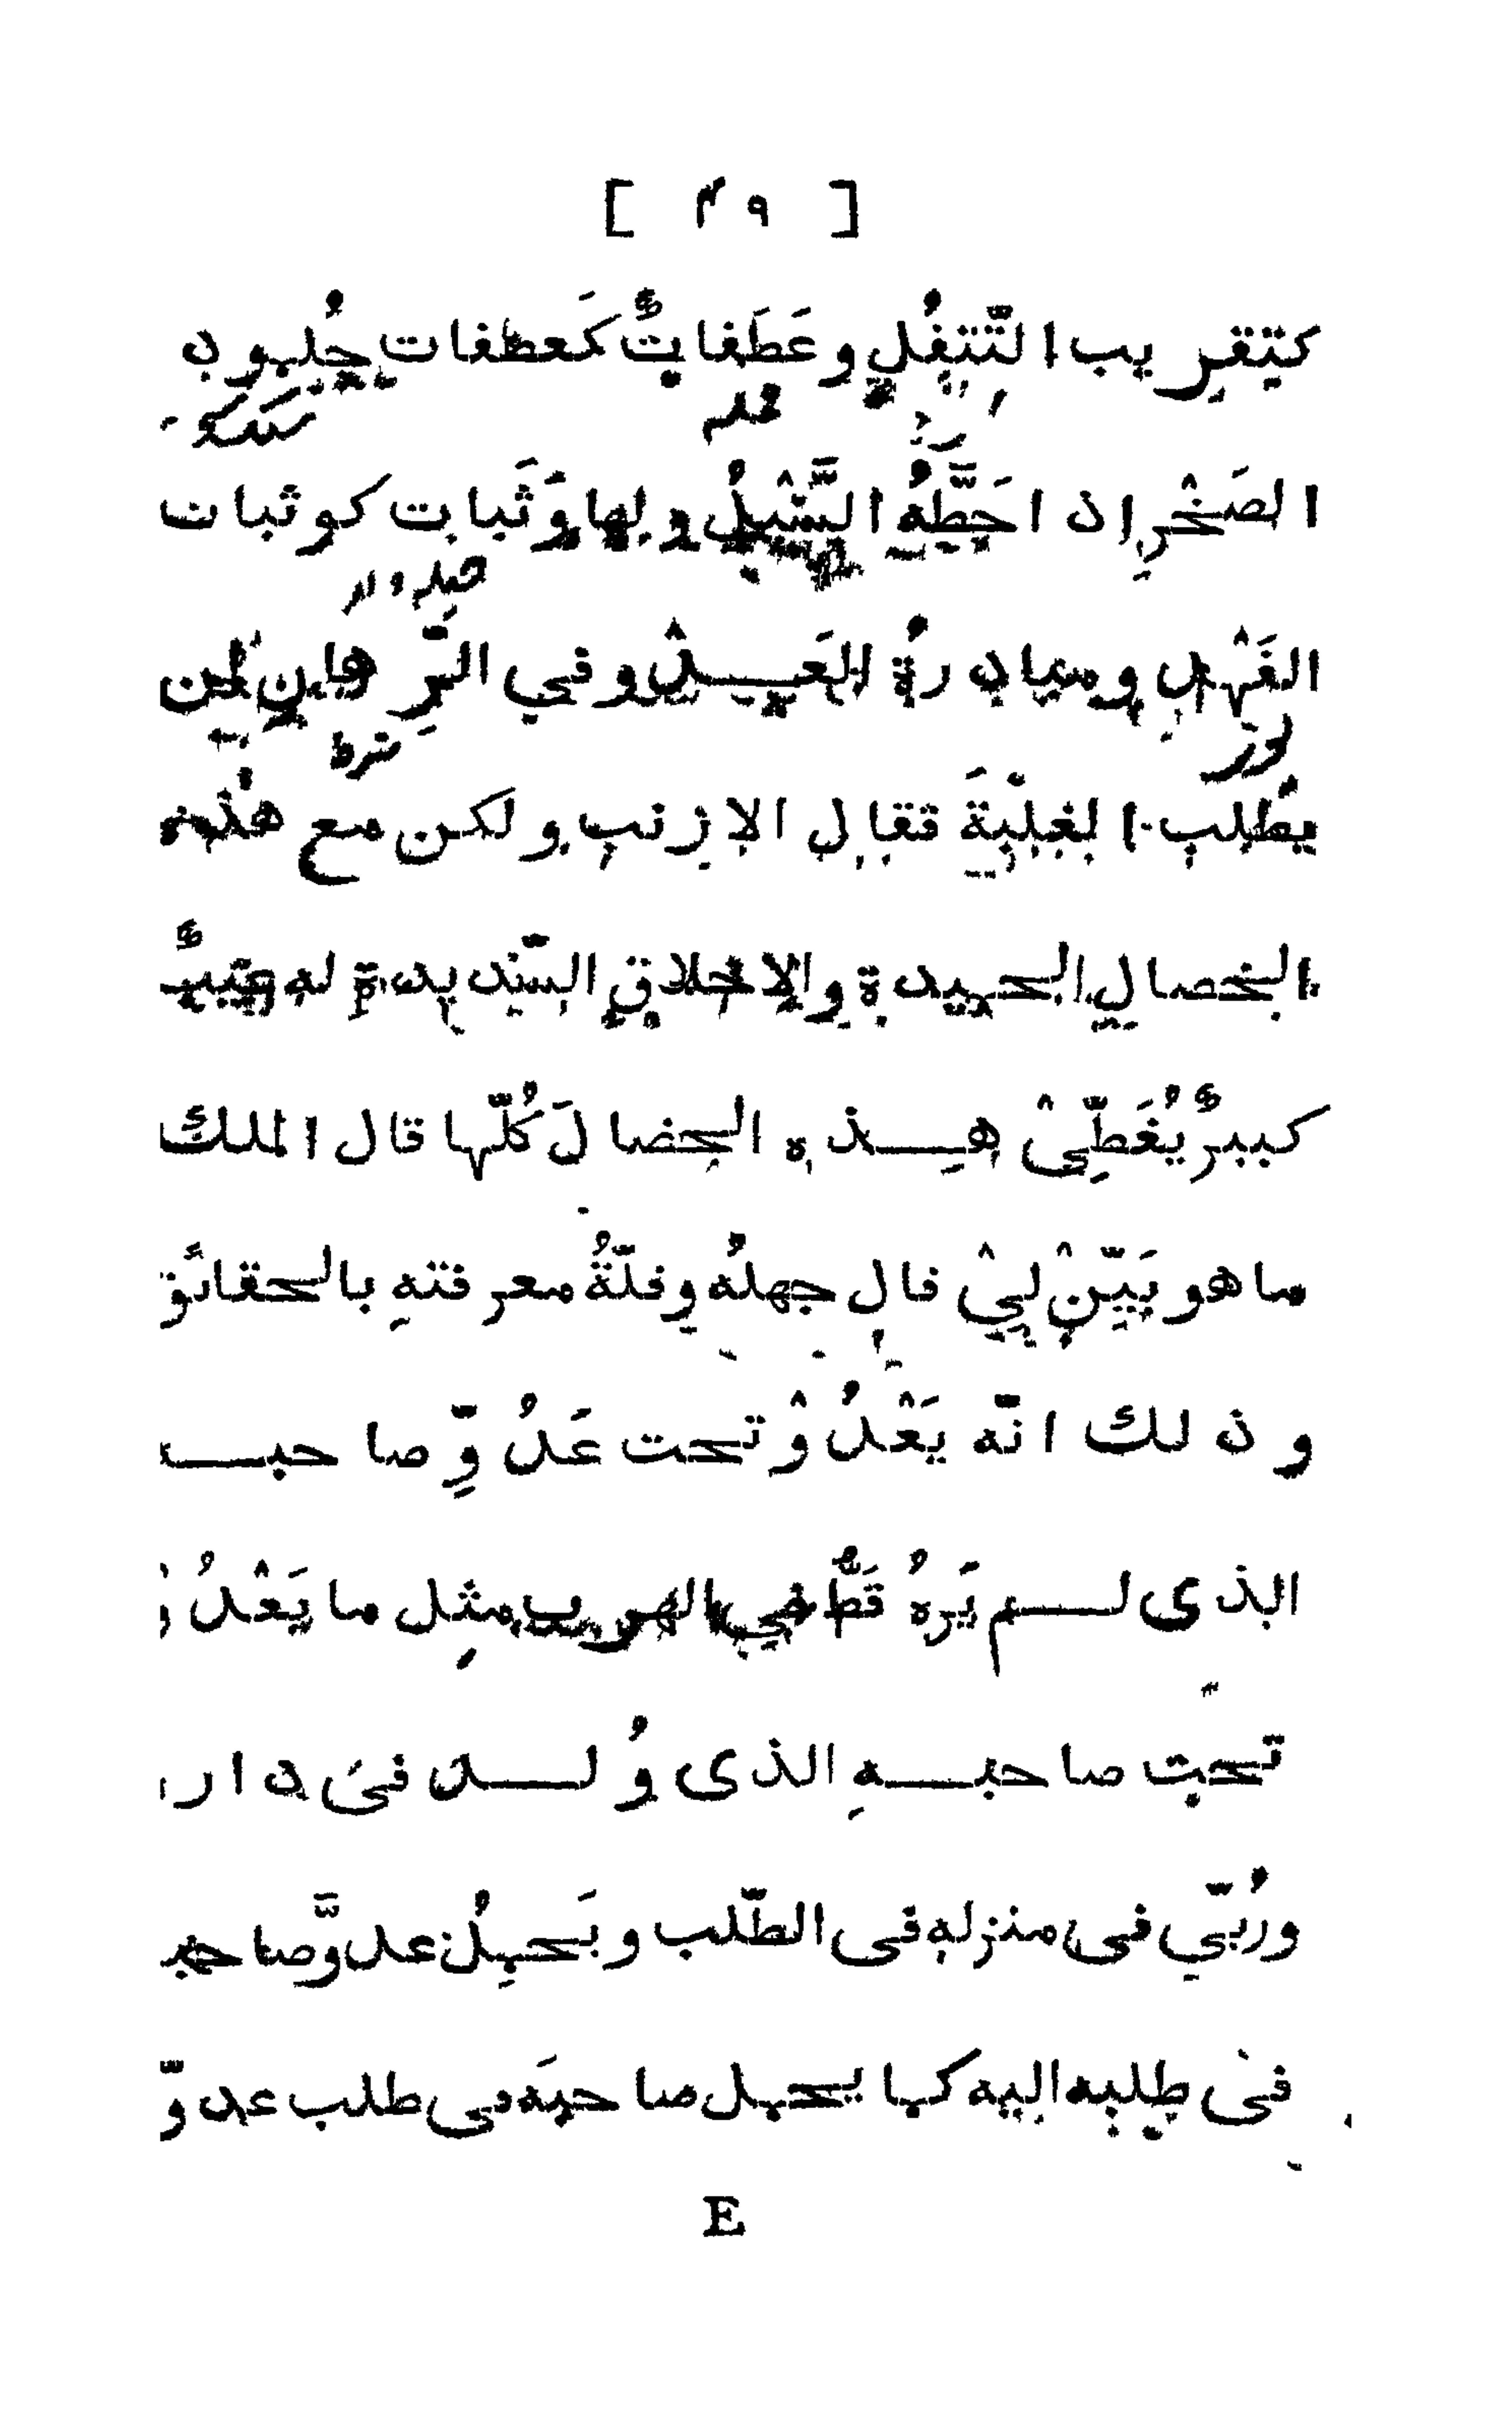 [ ۴۹ ]
كتقريب التّتفُلِ و عَطَفاتٌ كَعطفات جُلمون
الصَخْرِ اذ احَطَّهُ السَّيْلُ و لها وَثَبات كوثبات
الفَهْد ومبادرةُ العَيدْ وفي الرِّهان لمن
يطلب الغلبةَ فقال الارنب ولكن مع هذه
الخصال الحميدة والاخلاق السّديدة له عيبٌ
كبيرٌ يُغَطِّىْ هذه الخصالَ كُلّها قال الملك
ما هو بَيّنْ لِيْ قال جهلُه وقلّةُ معرفتهِ بالحقائق
وذلك انّه يَعْدُوْ تحت عَدُوِّ صاحبـ
الذى لم يَرهُ قَطٌّ في الهرب مثل ما يَعْدُو
تحت صاحبهِ الذى وُلد فى دار
ورُبّي فى منزله فى الطّلب و يَحمِلُ عدوَّ صاحبـ
فى طلبه اليه كما يحمل صاحبَه فى طلب عدوّ
E